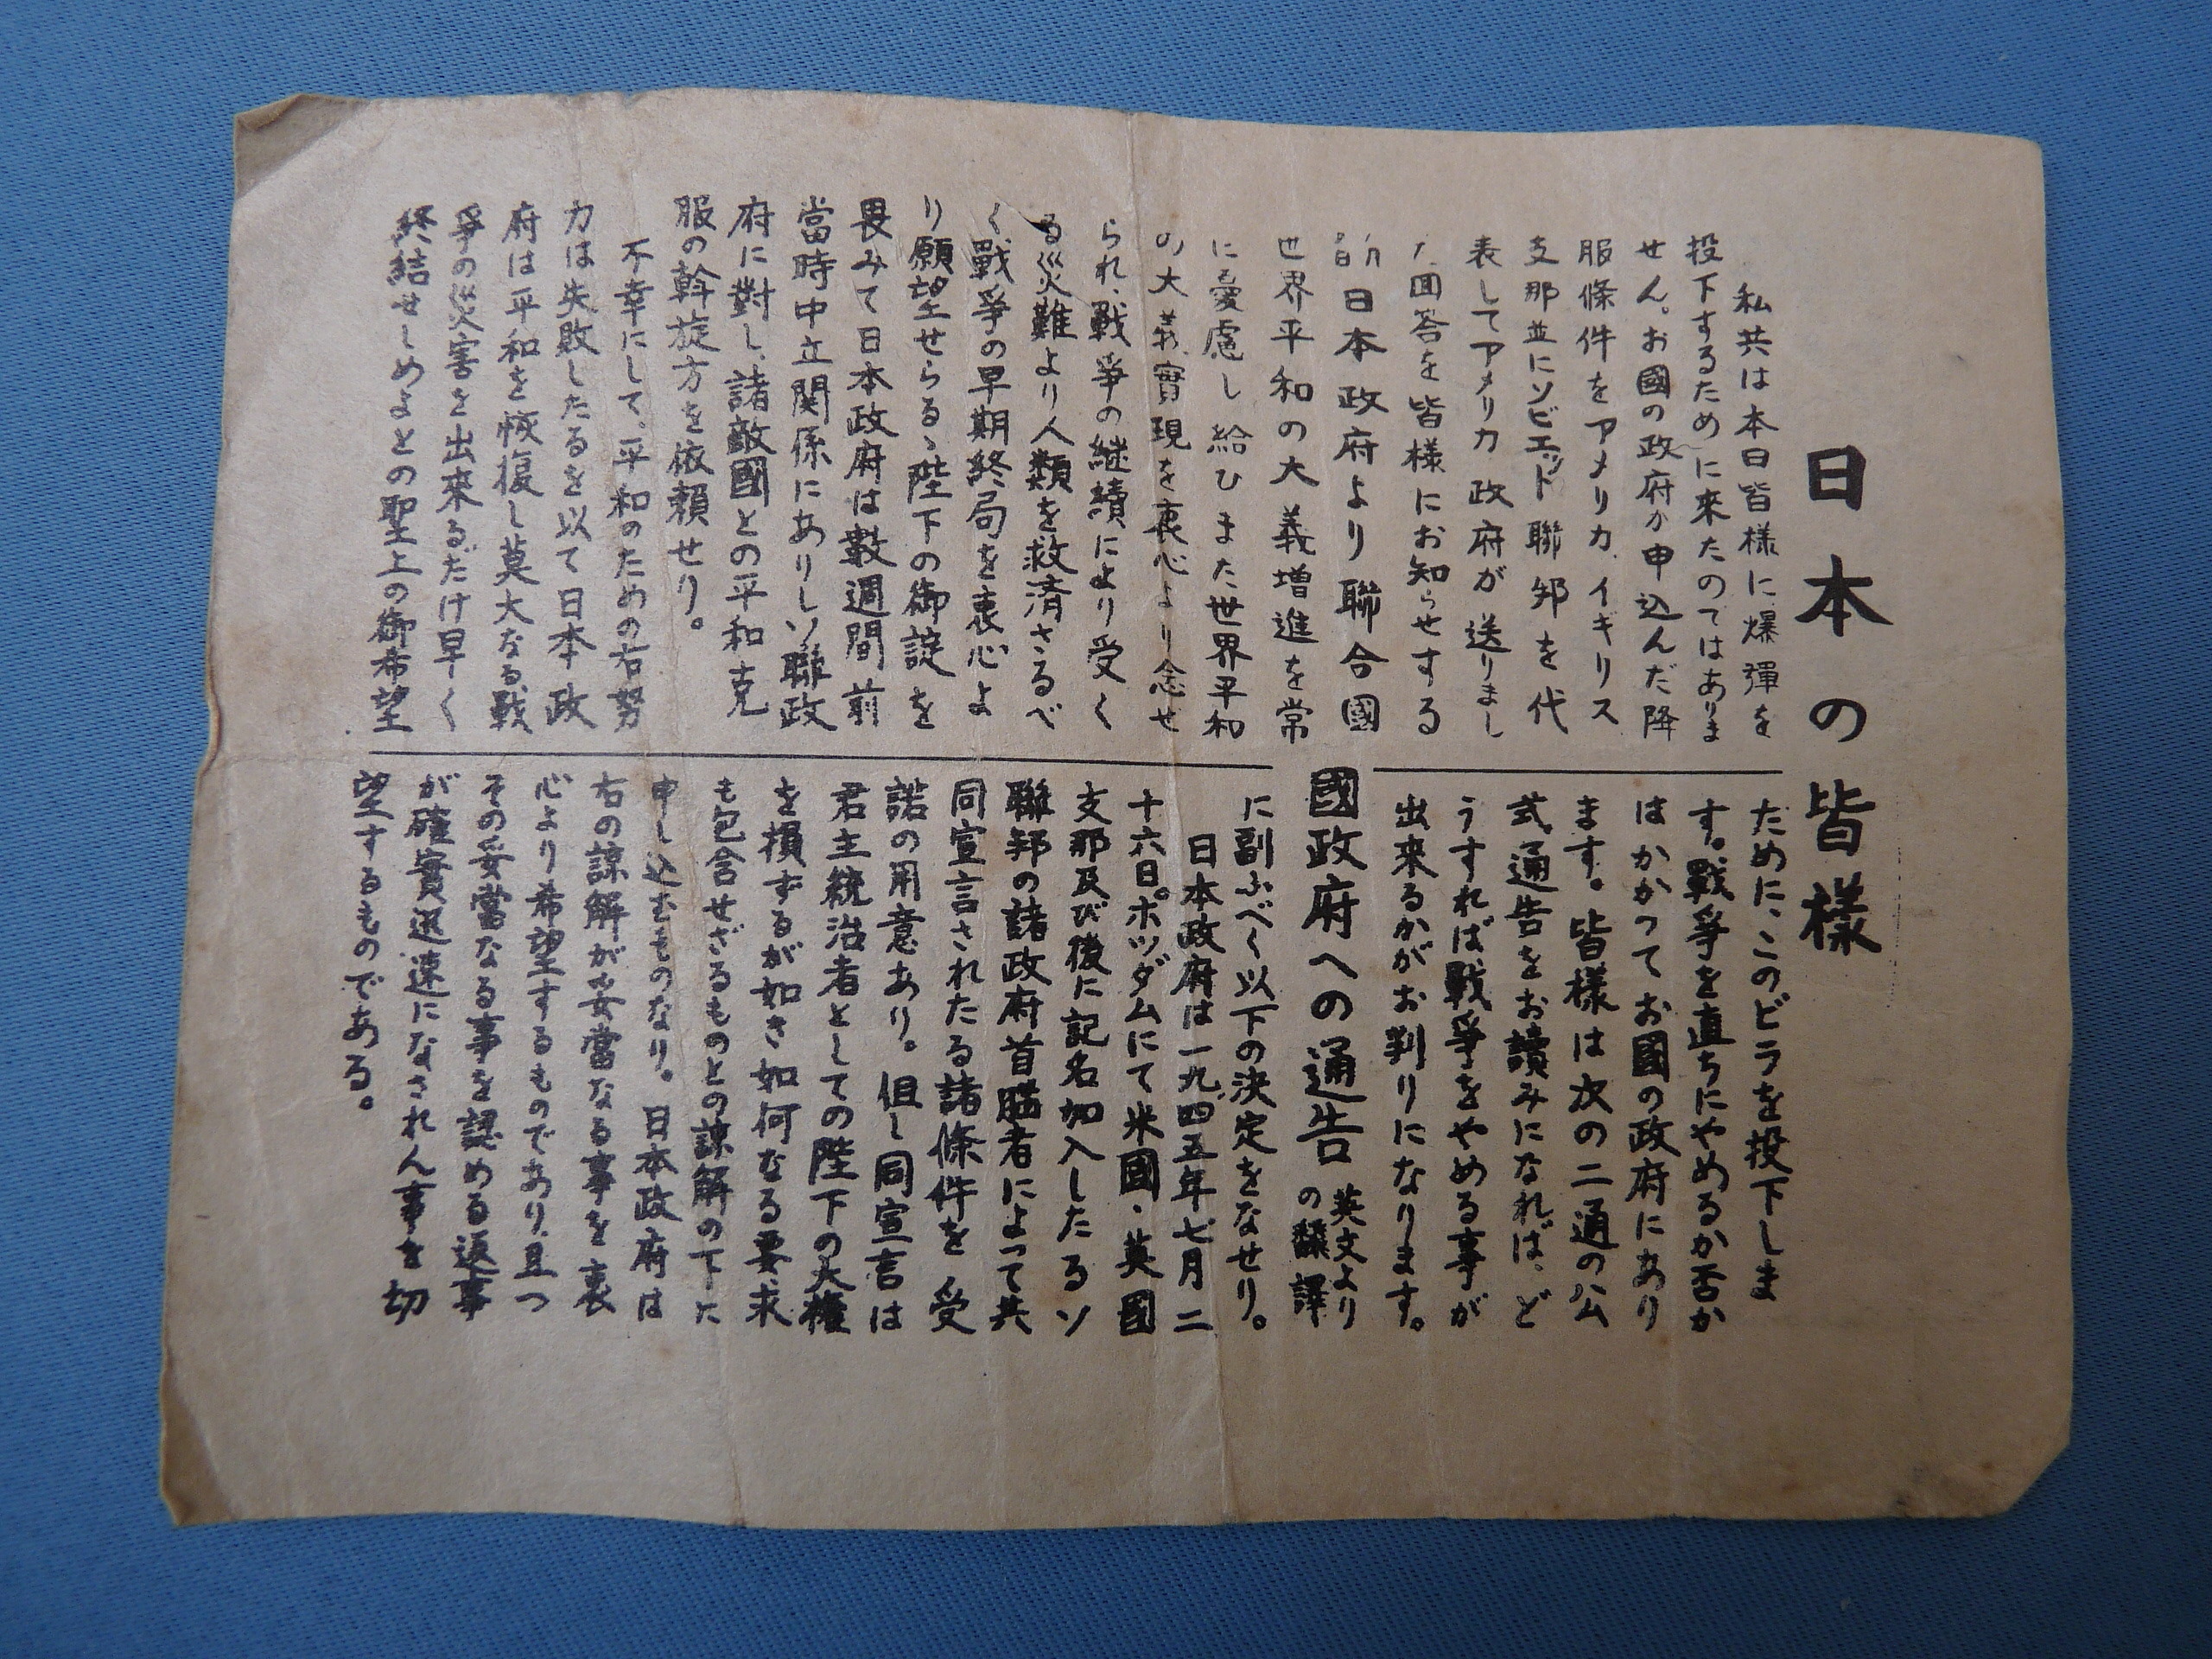 日本の皆様
私共は本日皆様に爆彈を
投下するために来たのてはありま
せん。お國の政府か申込んだ降
服條件をアメリカ、イギリス
支那並にソビエット聯邦を代
表してアメリカ政府が送りまし
た回答を皆様にお知らせする
ために、このビラを投下しま
す。戰爭を直ちにやめるか否か
はかかつてお國の政府にあり
ます。皆様は次の二通の公
式通告をお讀みになれば、ど
うすれば戰爭をやめる事が
出来るかがお判りになります。
日本政府より聯合國
國政府への通告 英文より
の飜譯
世界平和の大義増進を常
に憂慮し給ひまた世界平和
の大義實現を衷心より念せ
られ、戰爭の継續により受く
る災難より人類を救済さるべ
く戰爭の早期終局を衷心よ
り願望せらるゝ陛下の御諚を
畏みて日本政府は數週間前
當時中立関係にありしソ聯政
府に對し、諸敵國との平和克
服の斡旋方を依頼せり。
不幸にして、平和のための右努
力は失敗したるを以て日本政
府は平和を恢復し莫大なる戰
爭の災害を出来るだけ早く
終結せしめよとの聖上の御希望
に副ふべく以下の決定をなせり。
日本政府は一九四五年七月二
十六日。ポツダムにて米國・英國
支那及び後に記名加入したるソ
聯邦の諸政府首脳者によつて共
同宣言されたる諸條件を受
諾の用意あり。但し同宣言は
君主統治者としての陛下の大權
を損ずるが如き如何なる要求
も包含せざるものとの諒解の下た
申し込むものなり。日本政府は
右の諒解が妥當なる事を衷
心より希望するものであり、且つ
その妥當なる事を認める返事
が確實迅速になされん事を切
望するものである。